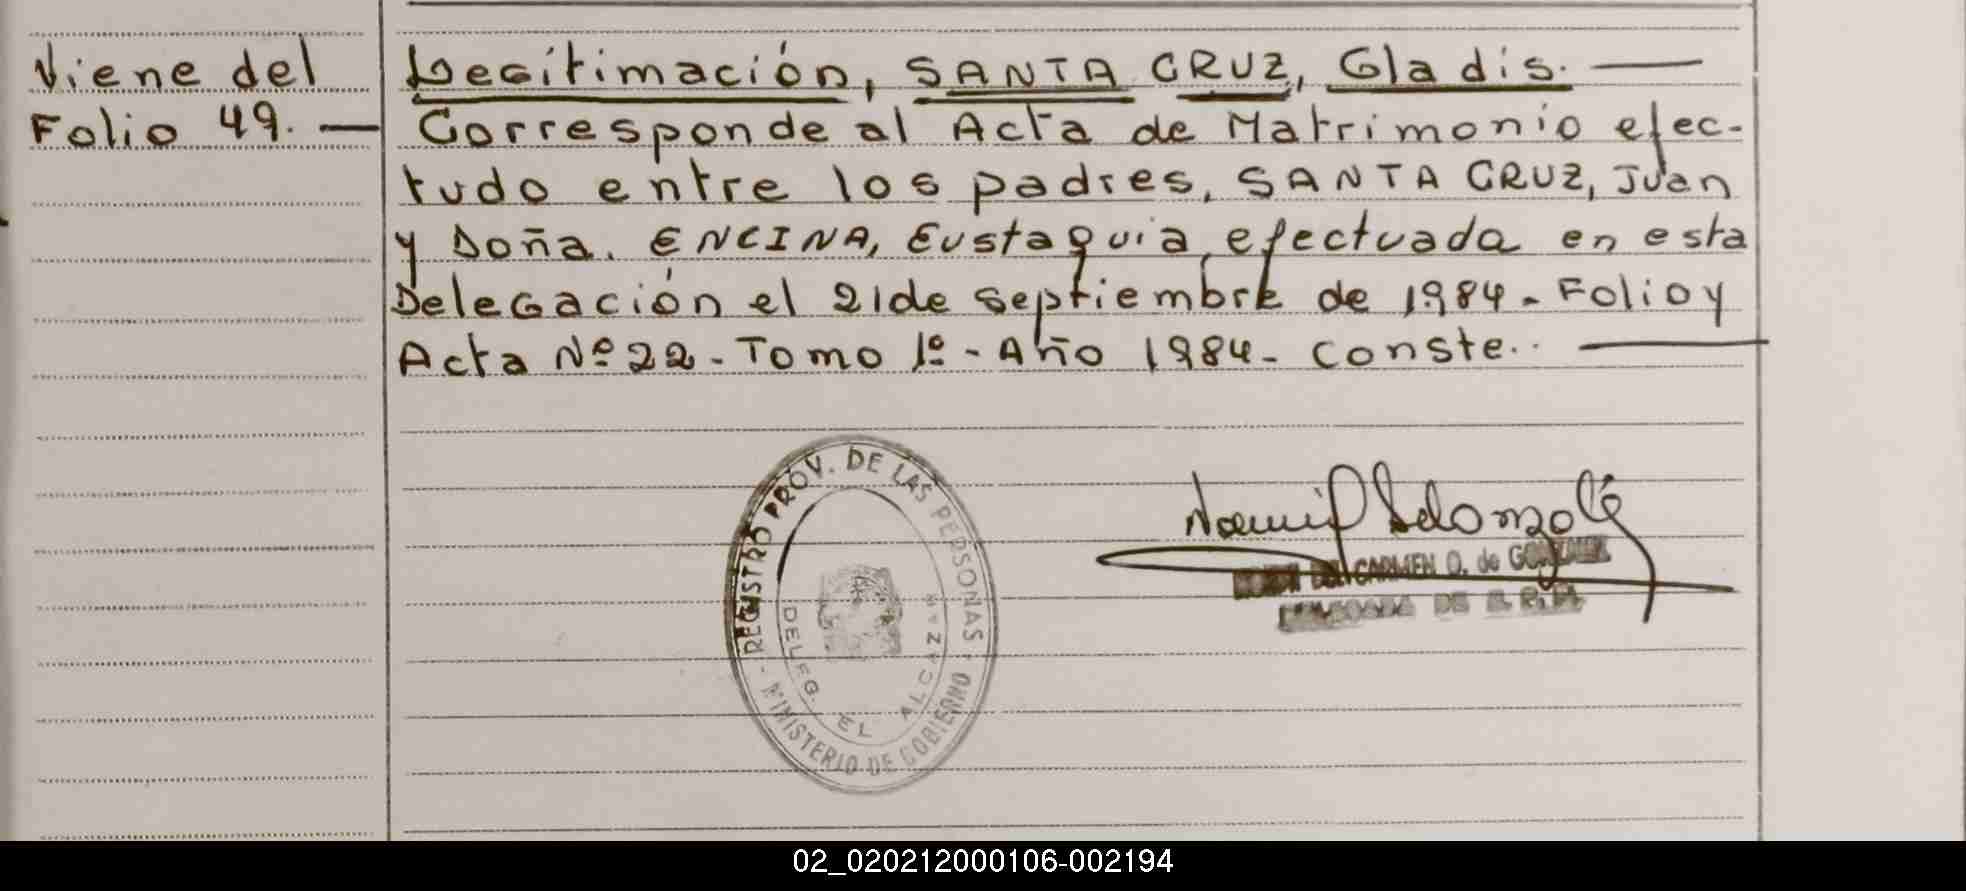 Viene del
Folio 49. —
Legitimación, SANTA CRUZ, Gladis. —
Corresponde al Acta de Matrimonio efec-
tudo entre los padres, SANTA CRUZ, Juan
y Doña. ENCINA, Eustaquia, efectuada en esta
Delegación el 21 de septiembre de 1984 - Folio y
Acta Nº 22 - Tomo 1º - Año 1984 - Conste.. —
REGISTRO PROV. DE LAS PERSONAS
- MINISTERIO DE GOBIERNO -
DELEG. EL ALCAZAR
DEL CARMEN O. de GONZALEZ
DE
02_020212000106-002194